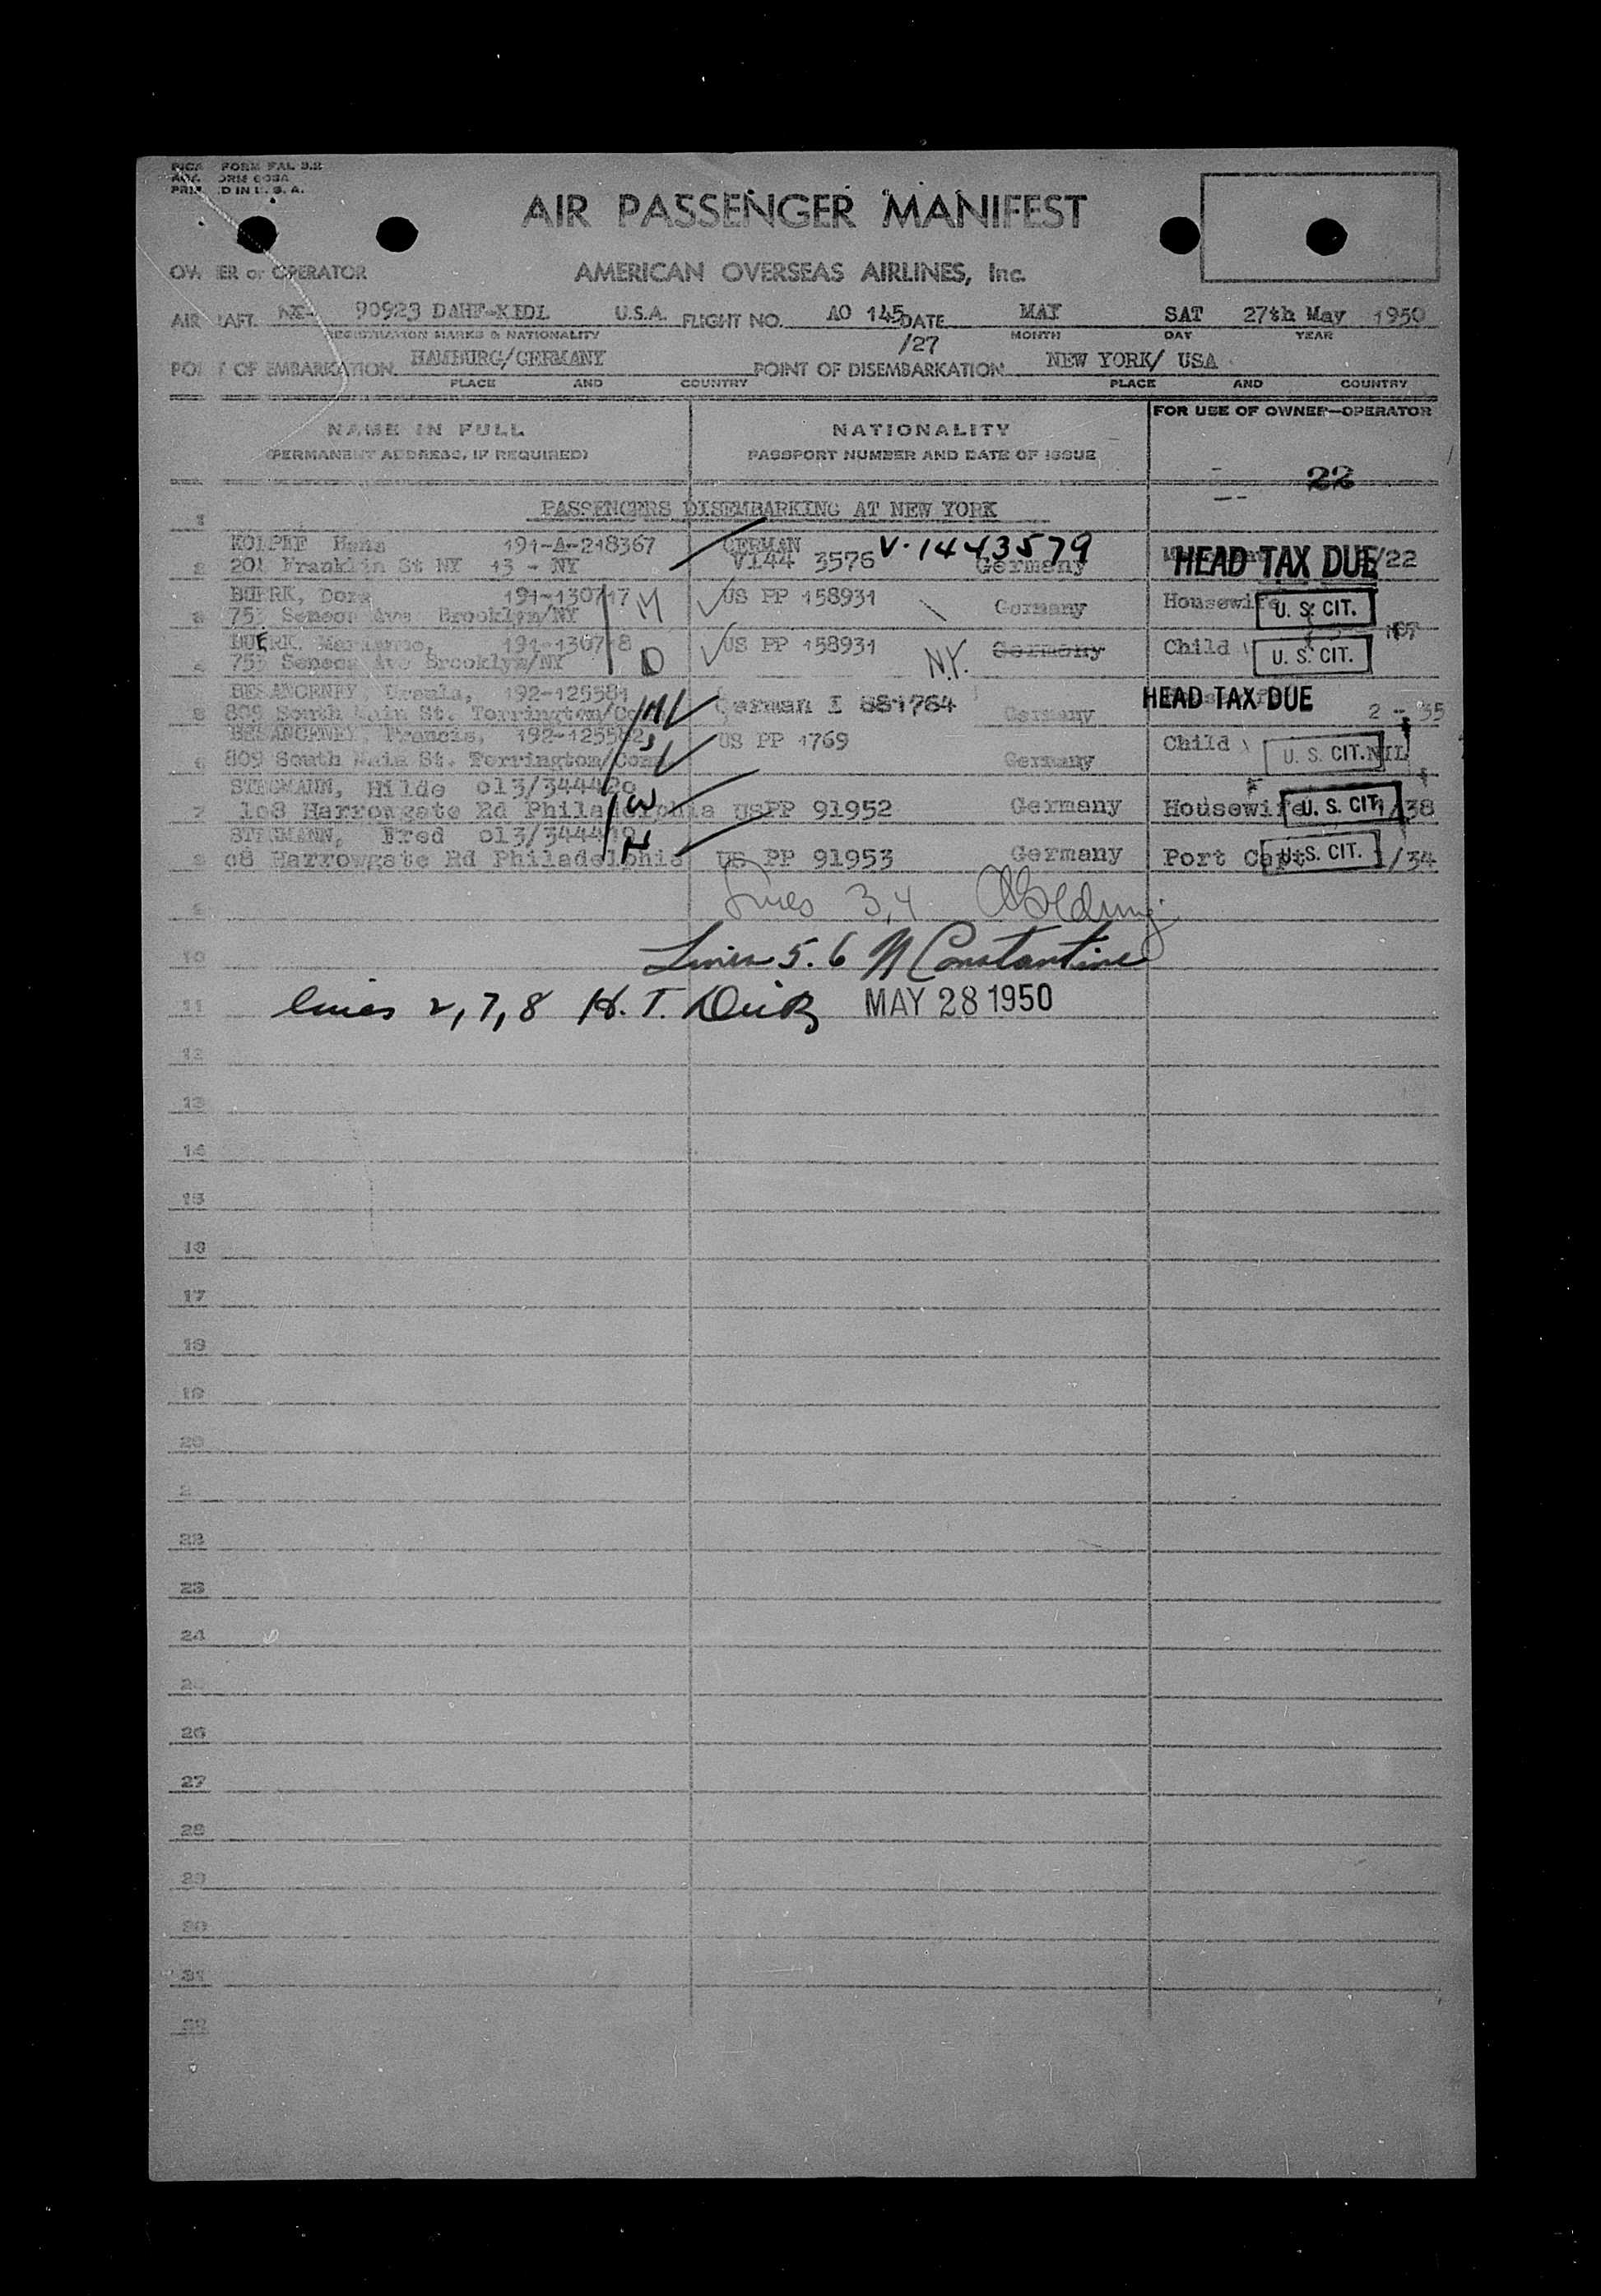 FORM FAL 3.2
D IN U. S. A.
AIR PASSENGER MANIFEST
OWNER or OPERATOR AMERICAN OVERSEAS AIRLINES, Inc.
90923 U.S.A. FLIGHT NO. AO 145 DATE MAY SAT 27th May 1950
REGISTRATION MARKS & NATIONALITY /27 MONTH DAY YEAR
POINT OF EMBARKATION HAMBURG/GERMANY POINT OF DISEMBARKATION NEW YORK/ USA
PLACE AND COUNTRY PLACE AND COUNTRY
FOR USE OF OWNER—OPERATOR
NAME IN FULL NATIONALITY
(PERMANENT ADDRESS, IF REQUIRED) PASSPORT NUMBER AND DATE OF ISSUE
22
PASSENGERS DISEMBARKING AT NEW YORK
1
Hans 191-A-218367 GERMAN V.1443579
2 201 Franklin St NY 13 - NY V144 3576 Germany HEAD TAX DUE /22
BUERK, Dora 191-130717 M US PP 158931 Germany Housewife U. S. CIT.
3 753 Seneca Ave. Brooklyn/NY
BUERK, 191-130718 US PP 158931 N.Y. Germany Child U. S. CIT.
4 753 Seneca Ave Brooklyn/NY D
Ursula, 192-125581 German I 881764 HEAD TAX DUE
5 809 South Main St. Torrington/Co M Germany 2 - 35
Francis, 192-125582 S US PP 1769 Child U. S. CIT. NIL
6 809 South Main St. Torrington/Conn Germany
STEGMANN, Hilde o13/344420 W
7 108 Harrowgate Rd Philadelphia USPP 91952 Germany Housewife U. S. CIT. 1/38
STEGMANN, Fred o13/344419 H
8 o8 Harrowgate Rd Philadelphia US PP 91953 Germany Port Capt U.S. CIT. 1/34
9 Lines 3,4
10 Lines 5. 6 N Constantine
11 lines 2,7,8 H. T. MAY 28 1950
12
13
14
15
16
17
18
19
20
2
22
23
24
26
27
28
29
30
31
32